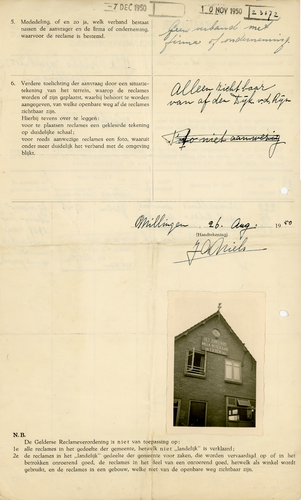 -7 DEC 1950
10 NOV 1950
5. Mededeling, of en zo ja, welk verband bestaat
tussen de aanvrager en de firma of onderneming,
waarvoor de reclame is bestemd.
Geen verband met
firma of onderneming
6. Verdere toelichting der aanvraag door een situatie-
tekening van het terrein, waarop de reclames
worden of zijn geplaatst, waarbij behoort te worden
aangegeven, van welke openbare weg af de reclames
zichtbaar zijn.
Hierbij tevens over te leggen:
voor te plaatsen reclames een gekleurde tekening
op duidelijke schaal;
voor reeds aanwezige reclames een foto, waaruit
onder meer duidelijk het verband met de omgeving
blijkt.
Alleen zichtbaar
van af den Dijk v.d. Rijn
niet aanwezig
Millingen 26 Aug. 1950
(Handtekening)
N.B.
De Gelderse Reclameverordening is niet van toepassing op:
1e alle reclames in het gedeelte der gemeente, hetwelk niet „landelijk” is verklaard;
2e de reclames in het „landelijk” gedeelte der gemeente voor zaken, die worden vervaardigd op of in het
betrokken onroerend goed, de reclames in het deel van een onroerend goed, hetwelk als winkel wordt
gebruikt, en de reclames in een gebouw, welke niet van de openbare weg zichtbaar zijn.